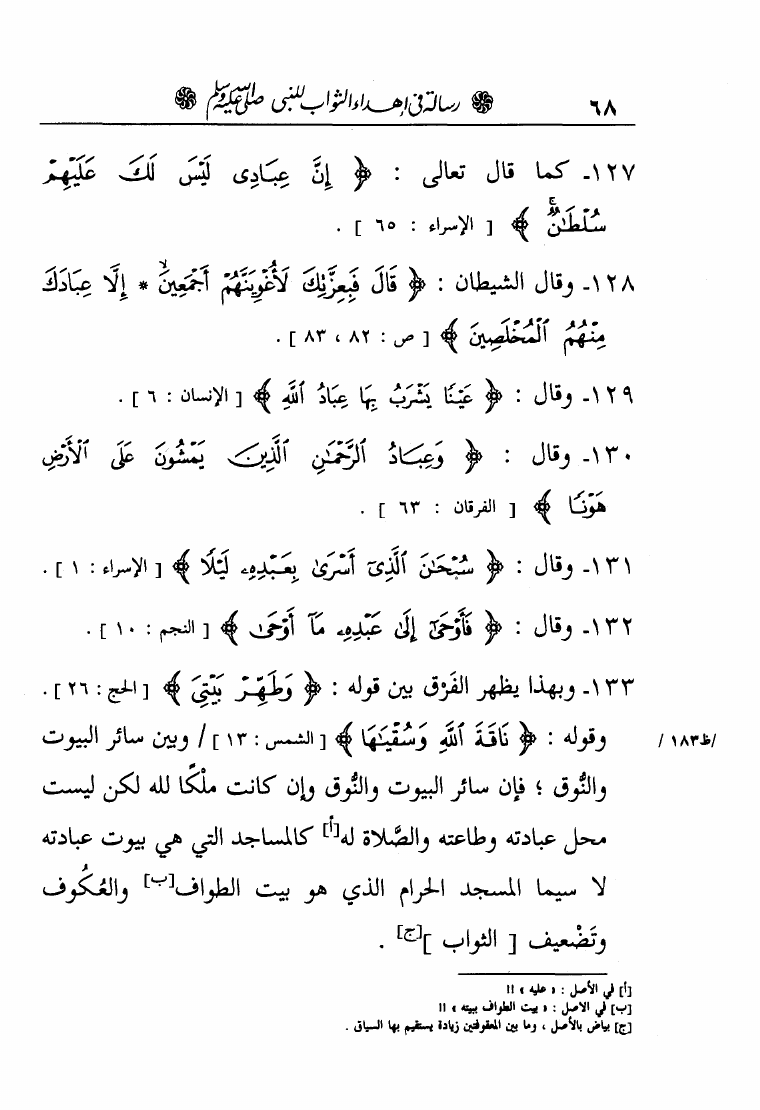 ٦٨ رسالة في إهداء الثواب للنبي صلى الله عليه وسلم
١٢٧ـ كما قال تعالى : ﴿ إِنَّ عِبَادِى لَيْسَ لَكَ عَلَيْهِمْ
سُلْطَـٰنٌ ۚ ﴾ [ الإسراء : ٦٥ ] .
١٢٨ـ وقال الشيطان : ﴿ قَالَ فَبِعِزَّتِكَ لَأُغْوِيَنَّهُمْ أَجْمَعِينَ ۙ * إِلَّا عِبَادَكَ
مِنْهُمُ ٱلْمُخْلَصِينَ ﴾ [ ص : ٨٢ ، ٨٣ ] .
١٢٩ـ وقال : ﴿ عَيْنًا يَشْرَبُ بِهَا عِبَادُ ٱللَّهِ ﴾ [ الإنسان : ٦ ] .
١٣٠ـ وقال : ﴿ وَعِبَادُ ٱلرَّحْمَـٰنِ ٱلَّذِينَ يَمْشُونَ عَلَى ٱلْأَرْضِ
هَوْنًا ﴾ [ الفرقان : ٦٣ ] .
١٣١ـ وقال : ﴿ سُبْحَـٰنَ ٱلَّذِىٓ أَسْرَىٰ بِعَبْدِهِۦ لَيْلًا ﴾ [ الإسراء : ١ ] .
١٣٢ـ وقال : ﴿ فَأَوْحَىٰٓ إِلَىٰ عَبْدِهِۦ مَآ أَوْحَىٰ ﴾ [ النجم : ١٠ ] .
١٣٣ـ وبهذا يظهر الفَرْق بين قوله : ﴿ وَطَهِّرْ بَيْتِىَ ﴾ [ الحج : ٢٦ ] .
/ظ١٨٣ / وقوله : ﴿ نَاقَةَ ٱللَّهِ وَسُقْيَـٰهَا ﴾ [ الشمس : ١٣ ] / وبين سائر البيوت
والنُّوق ؛ فإن سائر البيوت والنُّوق وإن كانت ملْكًا لله لكن ليست
محل عبادته وطاعته والصَّلاة له[أ] كالمساجد التي هي بيوت عبادته
لا سيما المسجد الحرام الذي هو بيت الطواف[ب] والعُكُوف
وتَضْعيف [ الثواب ][ج] .
[أ] في الأصل : « عليه » !!
[ب] في الاصل : « بيت الطواف ببيته » !!
[ج] بياض بالأصل ، وما بين المعقوفتين زيادة يستقيم بها السياق .